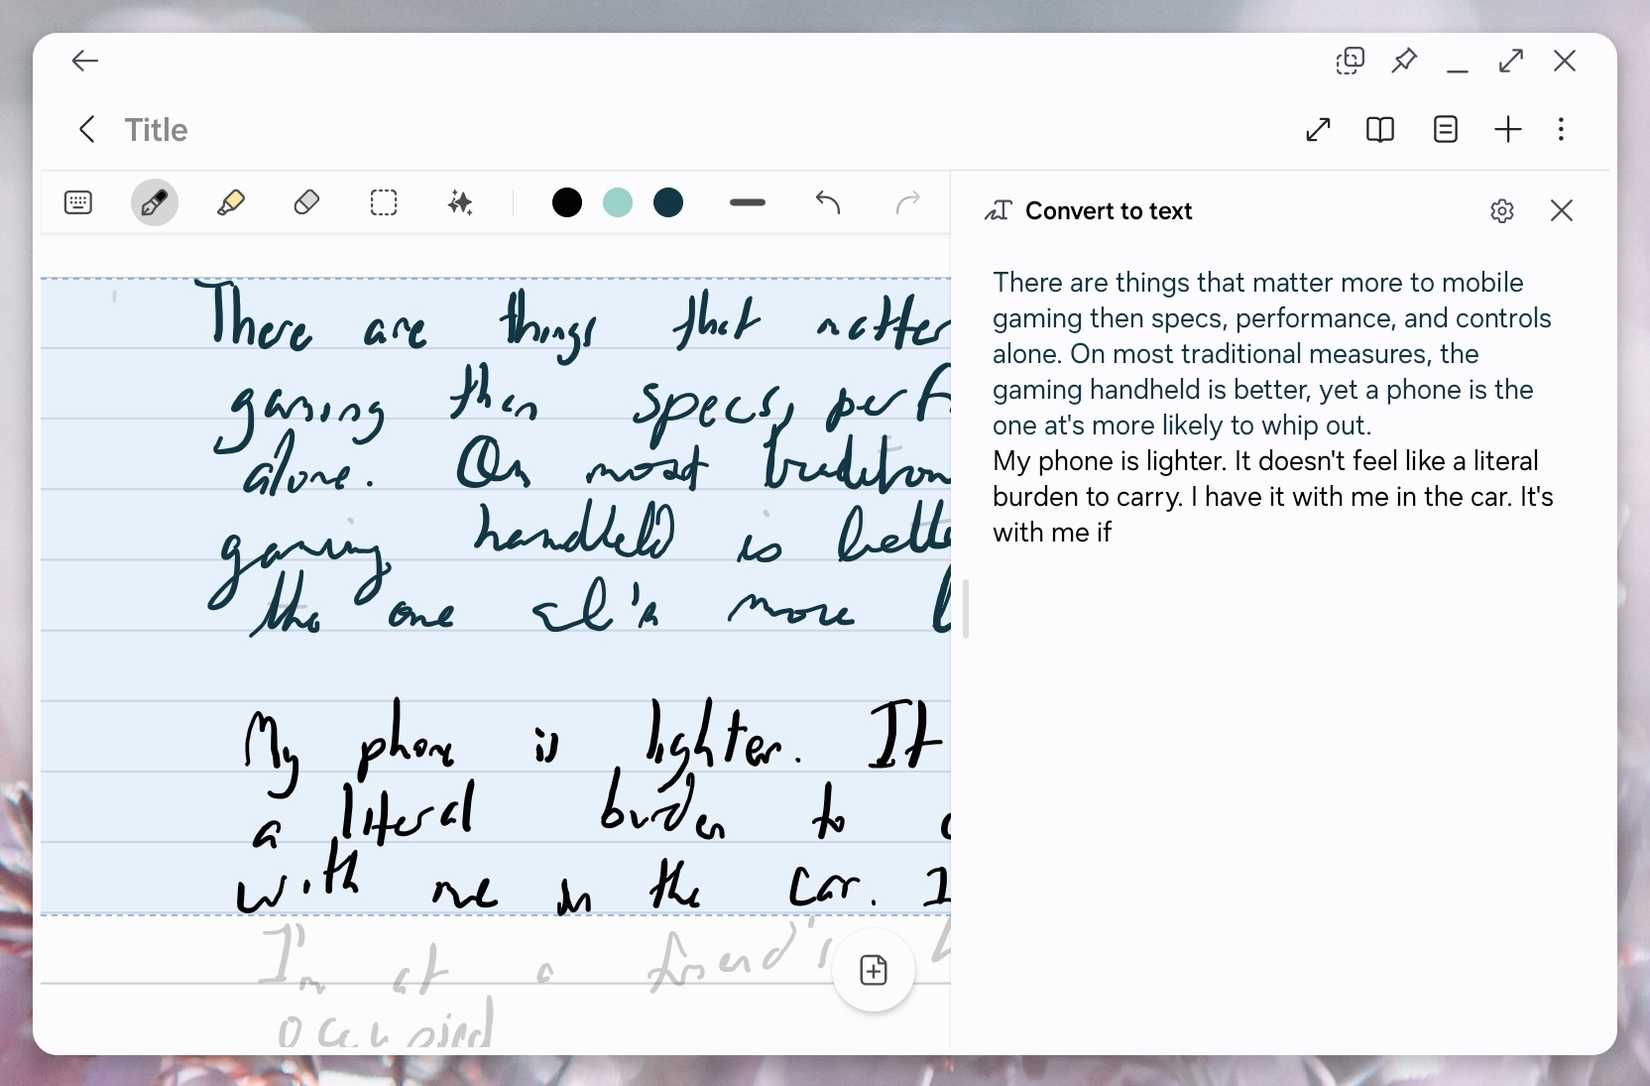 Title
Convert to text
There are things that matter
gaming then specs, perf
alone. On most tradition
gaming handheld is bette
the one at's more l
My phone is lighter. It
a literal burden to c
with me in the car. I
I'm at a friend's
occupied
There are things that matter more to mobile
gaming then specs, performance, and controls
alone. On most traditional measures, the
gaming handheld is better, yet a phone is the
one at's more likely to whip out.
My phone is lighter. It doesn't feel like a literal
burden to carry. I have it with me in the car. It's
with me if